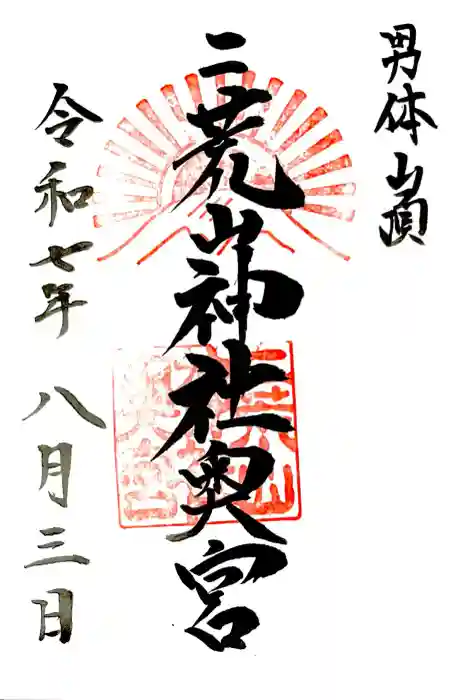 男体山頂
二荒山神社奥宮
令和七年 八月三日